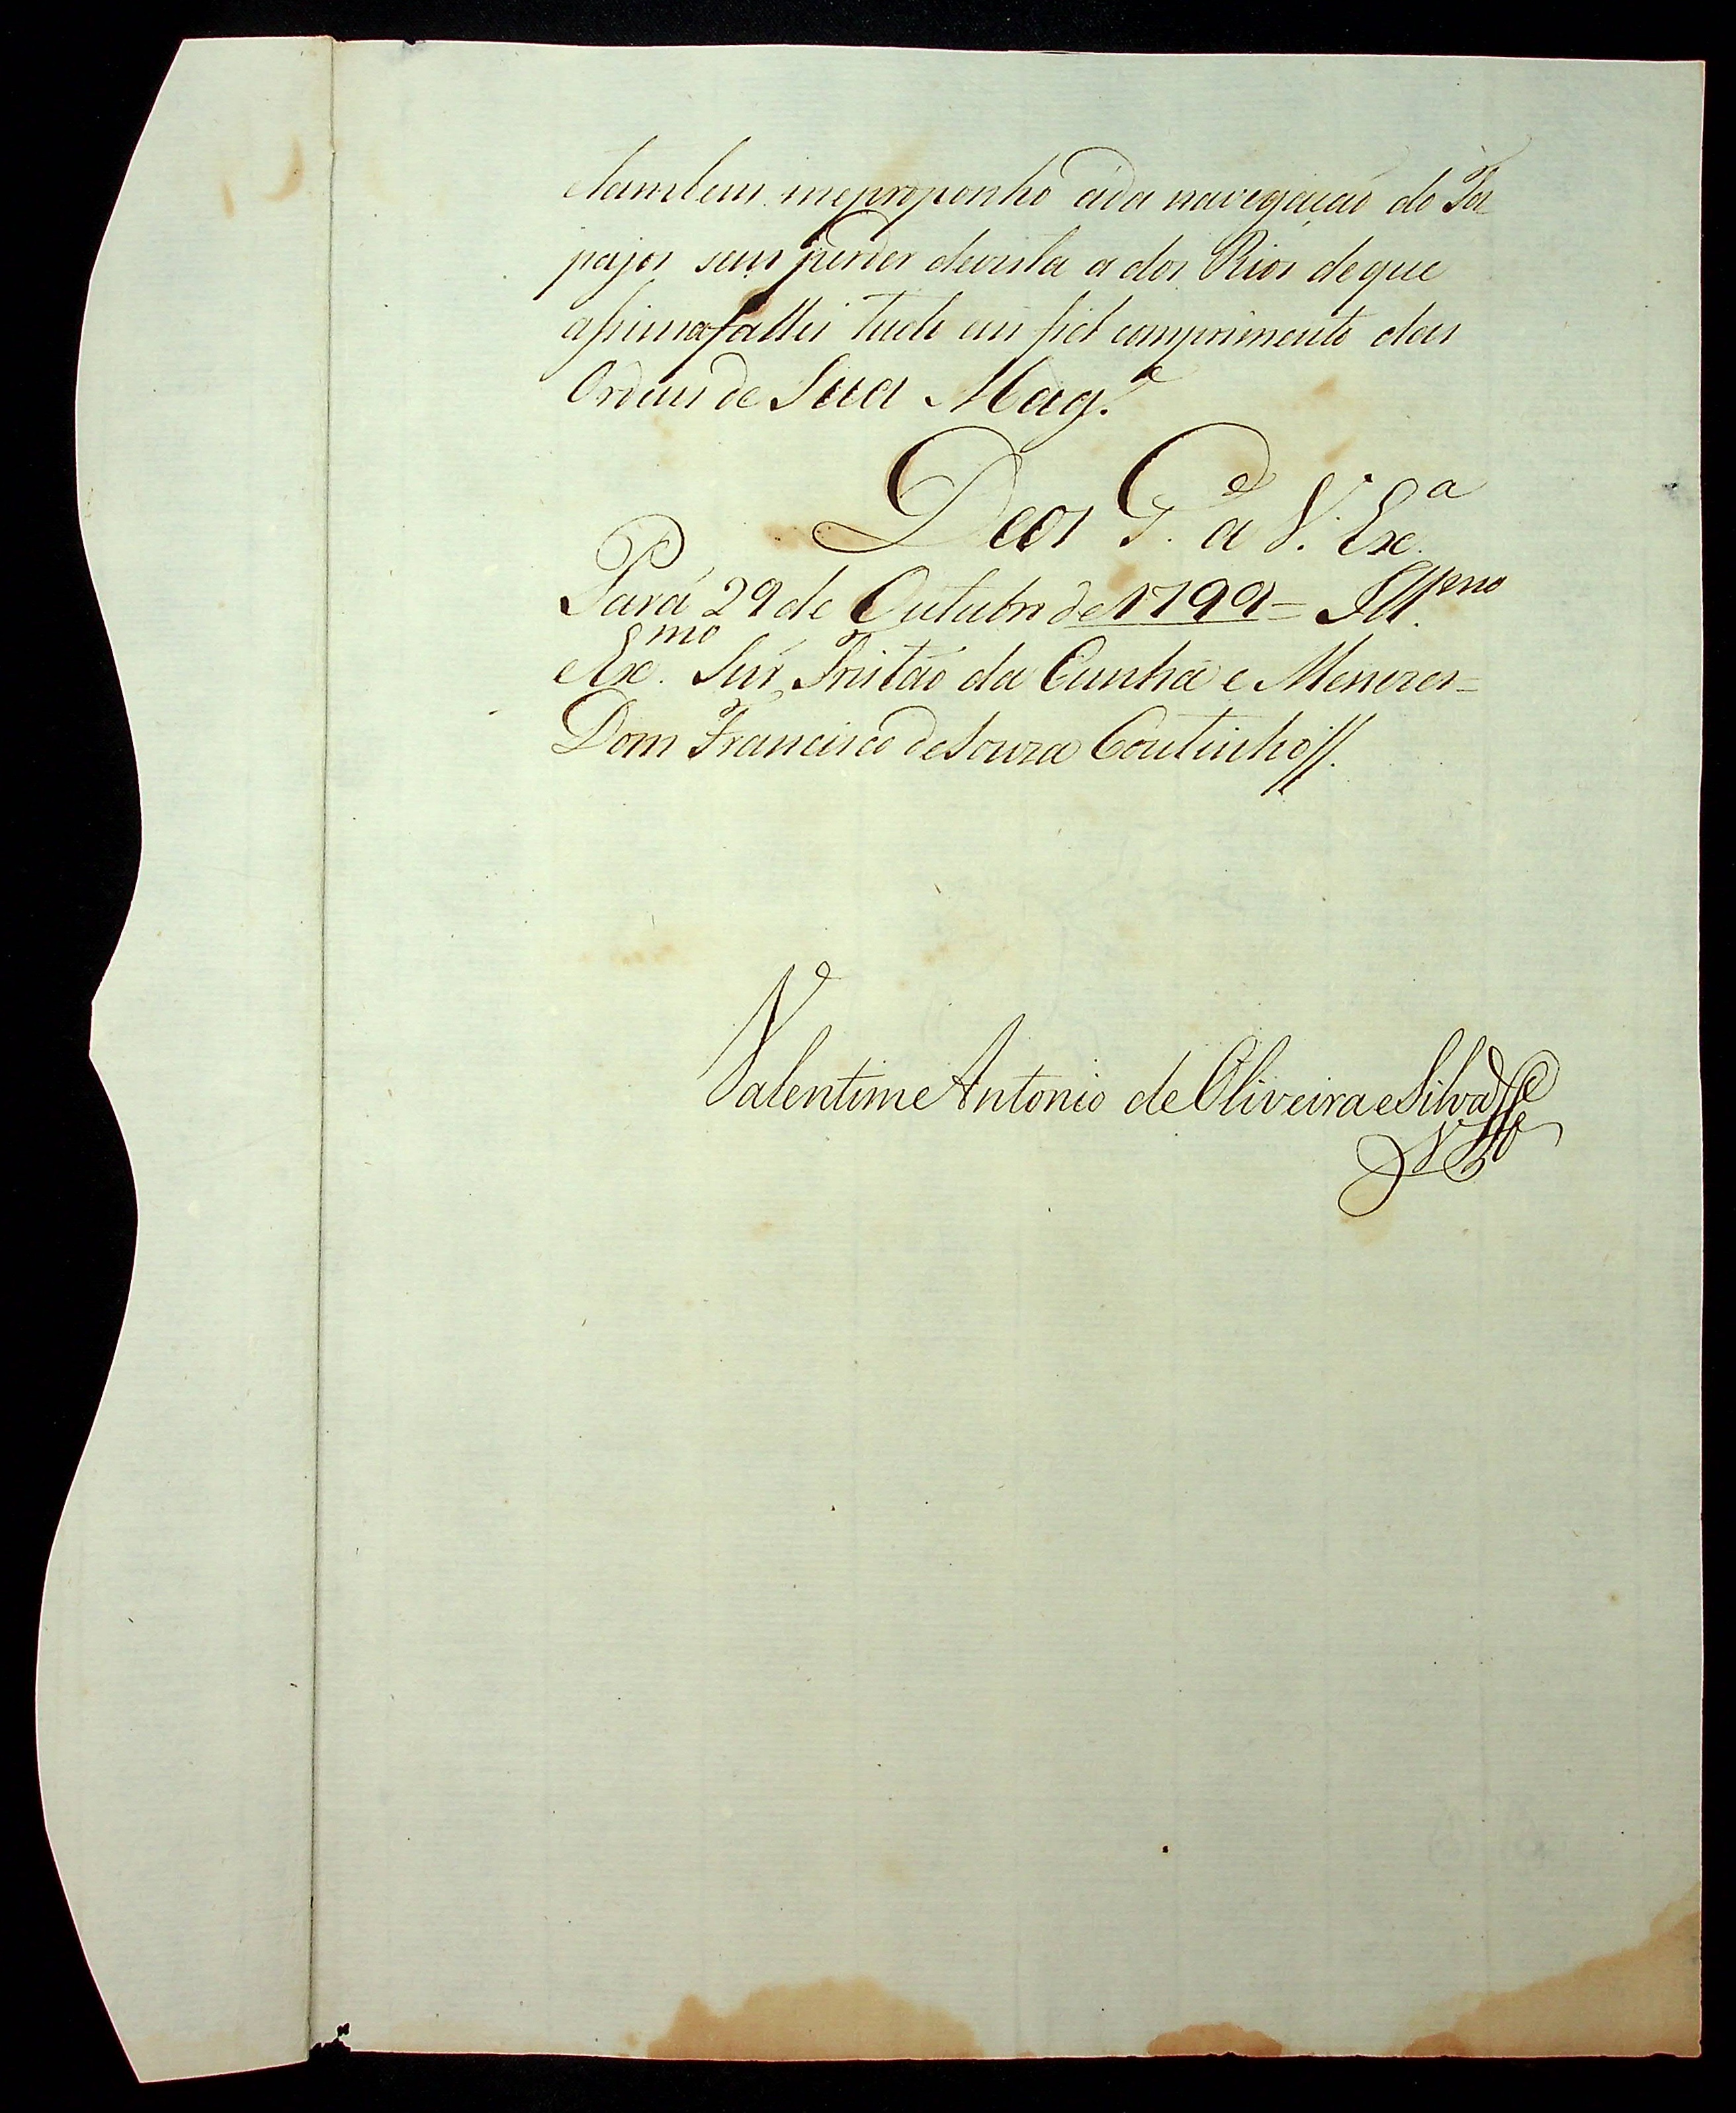 etambem meproponho áda navegaçaõ do Ta-
pajos sem perder devista a dos Rios deque
assima fallei tudo em fiel comprimento das
Ordens de Sua Mag.e
Deos G.de a V. Ex.a
Pará 29 de Outubro de 1799 = Ill.mo
e Ex.mo Snr. Tristão da Cunha e Menezes =
Dom Francisco deSouza Coutinho //.
Valentim Antonio de Oliveira e Silva